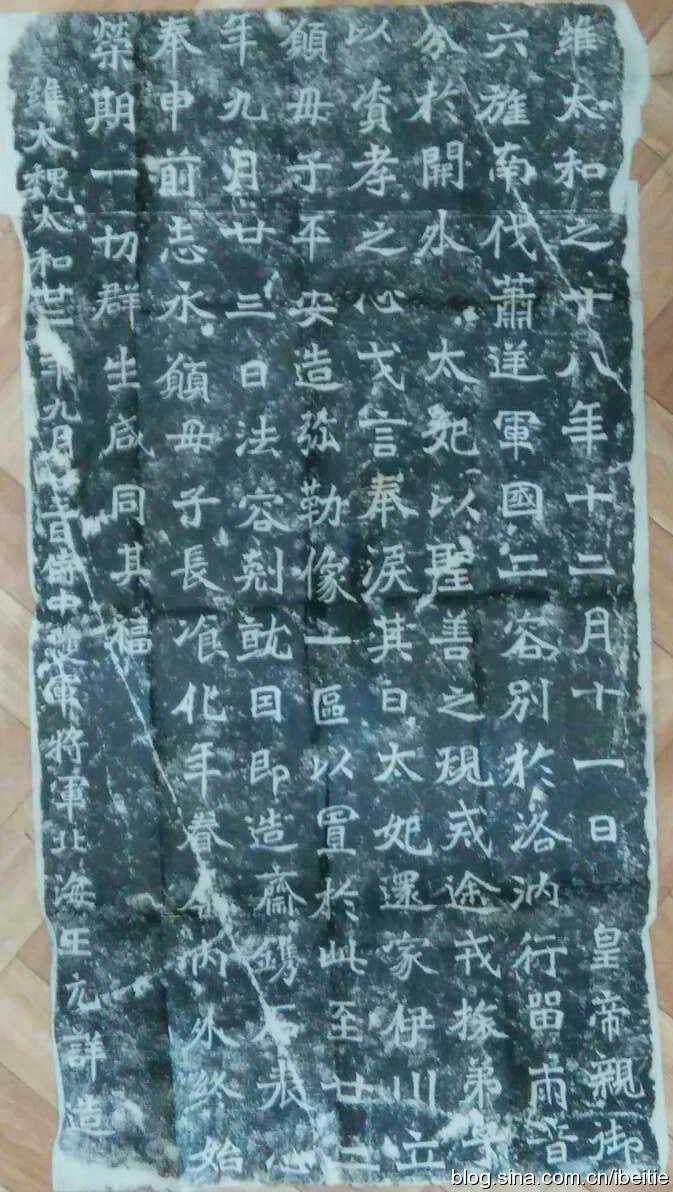 維太和之十八年十二月十一日 皇帝親御
六旌南伐蕭逆軍國二容別於洛汭行留兩音
分於開外 太妃以聖善之規戒途戎旅弟子
以資孝之心戈言奉淚其日太妃還家伊川立
願母子平安造弥勒像一區以置於此至廿二
年九月廿三日法容剋就因即造齋鐫石表心
奉申前志永願母子長飡化年眷屬內外終始
榮期一切群生咸同其福
維大魏太和廿二年九月廿三日侍中護軍將軍北海王元詳造
blog.sina.com.cn/ibeitie